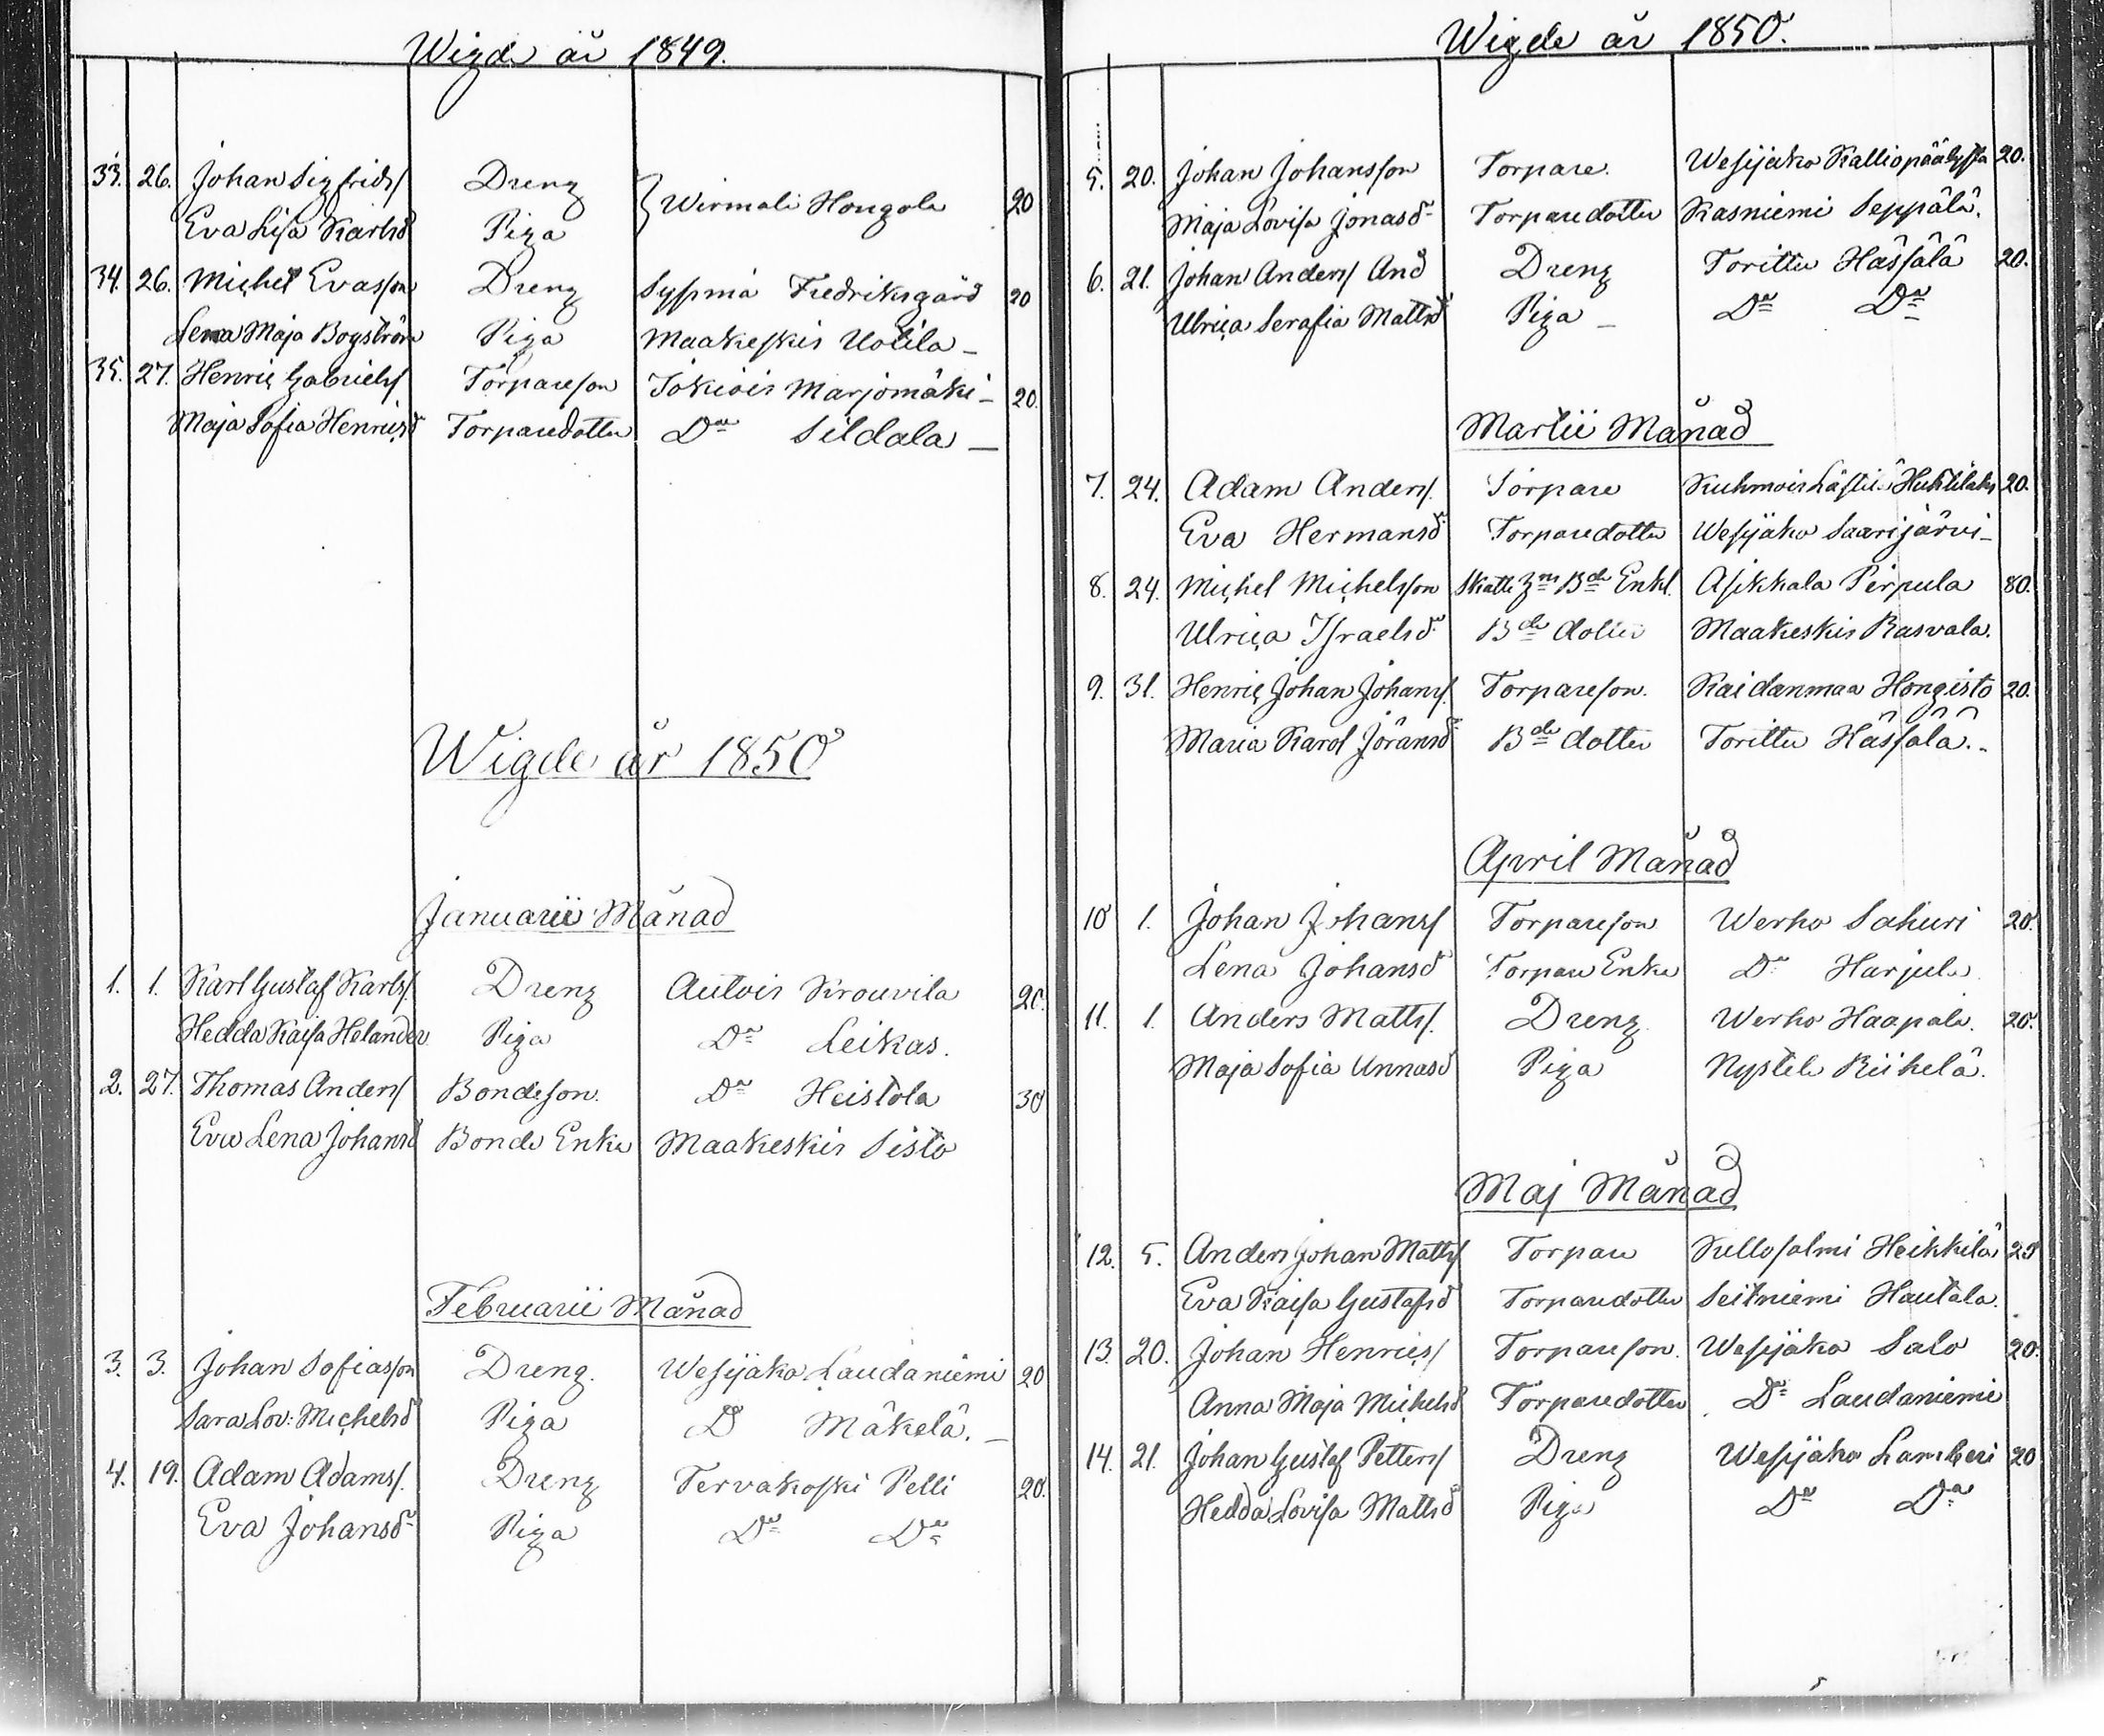 Wigde år 1849.
33. 26. Johan Sigfrids/ Dreng } Wirmali Hongola 20
Eva Lisa Karlsd Piga
34. 26. Michel Evasson Dreng Syssmä Fredriksgård 20
Lena Maja Bogström Piga Maakeskis Uotila
35. 27. Henric Gabriels/ Torpareson Jokiois Marjomäki 20.
Maja Sofia Henricsd Torparedotter Do Sildala
Wigde år 1850
Januarii Månad
1. 1. Karl Gustaf Karls/. Dreng Autois Krouvila 20.
Hedda Kaisa Helander Piga Do Leikas.
2. 27. Thomas Anders/ Bondeson. Do Heistola 30
Eva Lena Johansd Bonde Enka Maakeskis Sisto
Februarii Månad
3. 3. Johan Sofiasson Dreng. Wesijako Laudaniemi 20
Sara Lov: Michelsd Piga D Mäkelä.
4. 19. Adam Adams/. Dreng Tervakoski Pelli 20.
Eva Johansd Piga Do Do
Wigde år 1850.
5. 20. Johan Johansson Torpare. Wesijako Kalliopäälystä 20.
Maja Lovisa Jonasd Torparedotter Kasniemi Seppälä.
6. 21. Johan Anders/ And Dreng Torittu Hässälä 20.
Ulrica Serafia Mattsd Piga Do Do
Martii Månad
7. 24. Adam Anders/. Torpare Kuhmois Huhtilaks 20.
Eva Hermansd Torparedotter Wesijako Saarijärvi
8. 24. Michel Michelsson Skatte Bde Enkl. Asikkala Pirpula 80.
Ulrica Israelsd Bde dotter Maakeskis Rasvala.
9. 31. Henric Johan Johans/. Torpareson. Kaidanmaa Hongisto 20.
Maria Karol Jöransd Bde dotter Torittu Hässälä.
April Månad
10 1. Johan Johans/ Torpareson Werho Sahuri 20.
Lena Johansd Torpare Enka Do Harjula
11. 1. Anders Matts/. Dreng Werho Haapala. 20.
Maja Sofia Unnasd Piga Nystele Riihelä.
Maj Månad
12. 5. Anders Johan Matts/ Torpare Kellosalmi Heikkilä 20
Eva Kaisa Gustafsd Torparedotter Seitniemi Hautala.
13. 20. Johan Henrics/ Torpareson. Wesijako Salo 20.
Anna Maja Michelsd Torparedotter Do Laudaniemi
14. 21. Johan Gustaf Petters/ Dreng Wesijako Lamberi 20
Hedda Lovisa Mattsd Piga Do Do